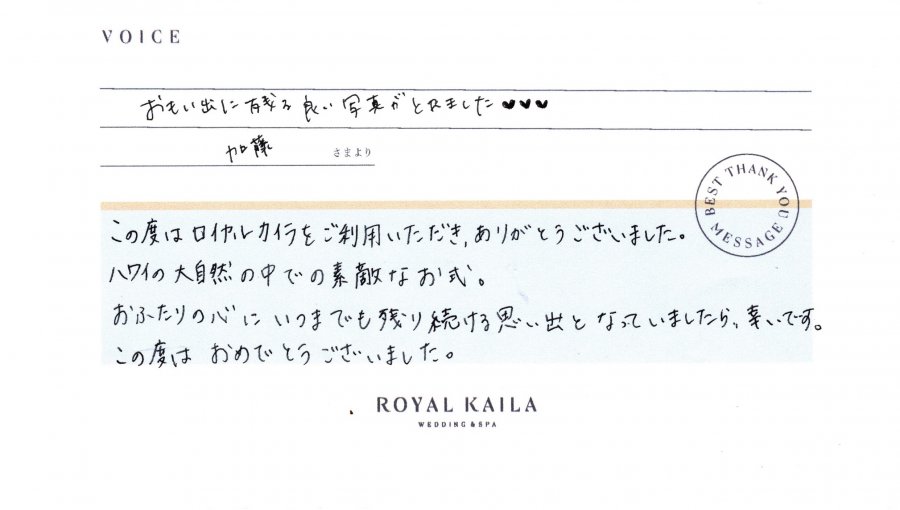 VOICE
おもい出に残る良い写真がとれました♥♥♥
加藤 さまより
BEST THANK YOU MESSAGE
この度はロイヤルカイラをご利用いただき、ありがとうございました。
ハワイの大自然の中での素敵なお式。
おふたりの心にいつまでも残り続ける思い出となっていましたら、幸いです。
この度は おめでとうございました。
ROYAL KAILA
WEDDING & SPA